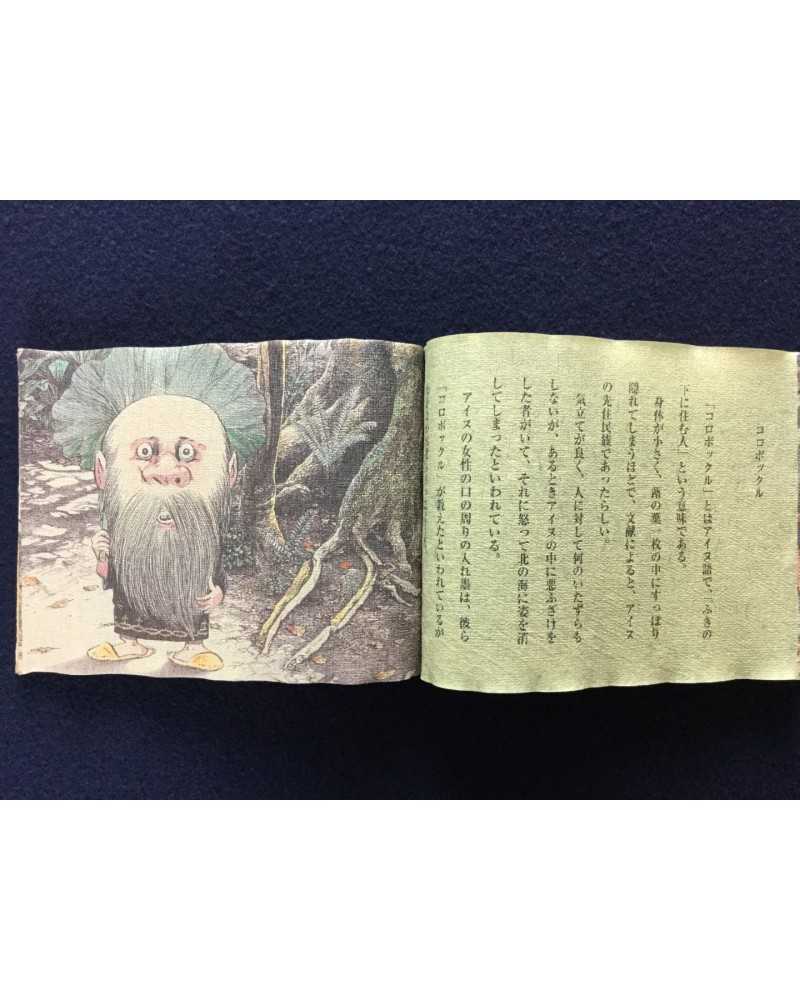 コロポックル
「コロポックル」とはアイヌ語で、「ふきの
下に住む人」という意味である。
身体が小さく、蕗の葉一枚の中にすっぽり
隠れてしまうほどで、文献によると、アイヌ
の先住民族であったらしい。
気立てが良く、人に対して何のいたずらも
しないが、あるときアイヌの中に悪ふざけを
した者がいて、それに怒って北の海に姿を消
してしまったといわれている。
アイヌの女性の口の周りの入れ墨は、彼ら
『コロポックル』が教えたといわれているが